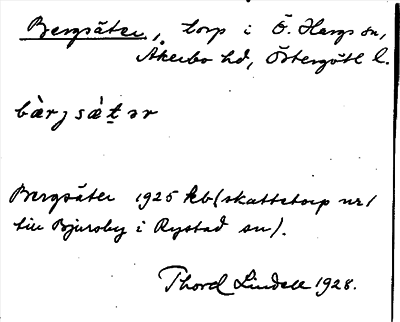 Bergsäter, torp i Ö. Hargs sn,
Åkerbo hd, Östergötl l.
bæ̀rj sǽt̠ ər
Bergsäter 1925 kb (skattetorp nr 1
till Bjursby i Rystad sn).
Thord Lindell 1928.